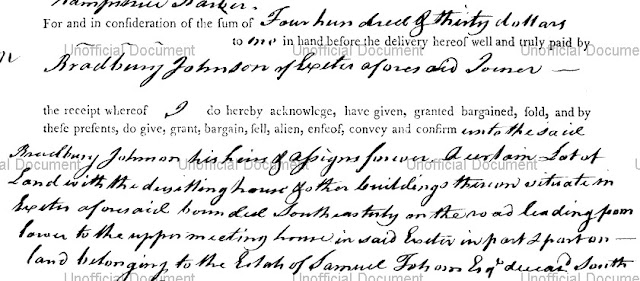 Hampshire
For and in consideration of the sum of Four hundred & thirty dollars
to me in hand before the delivery hereof well and truly paid by
Bradbury Johnson of Exeter aforesaid Joiner —
the receipt whereof I do hereby acknowlege, have given, granted bargained, ſold, and by
theſe preſents, do give, grant, bargain, ſell, alien, enfeof, convey and confirm unto the said
Bradbury Johnson his heirs & assigns forever A certain Lot of
Land with the dwelling house & other buildings thereon situate in
Exeter aforesaid bounded Southeasterly on the road leading from
lower to the upper meeting house in said Exeter in part & part on —
land belonging to the Estate of Samuel Esqr decead South
Unofficial Document Unofficial Document Unofficial Document Unofficial Document
Unofficial Document Unofficial Document Unofficial Document Unofficial Document
Unofficial Document Unofficial Document Unofficial Document Unofficial Document